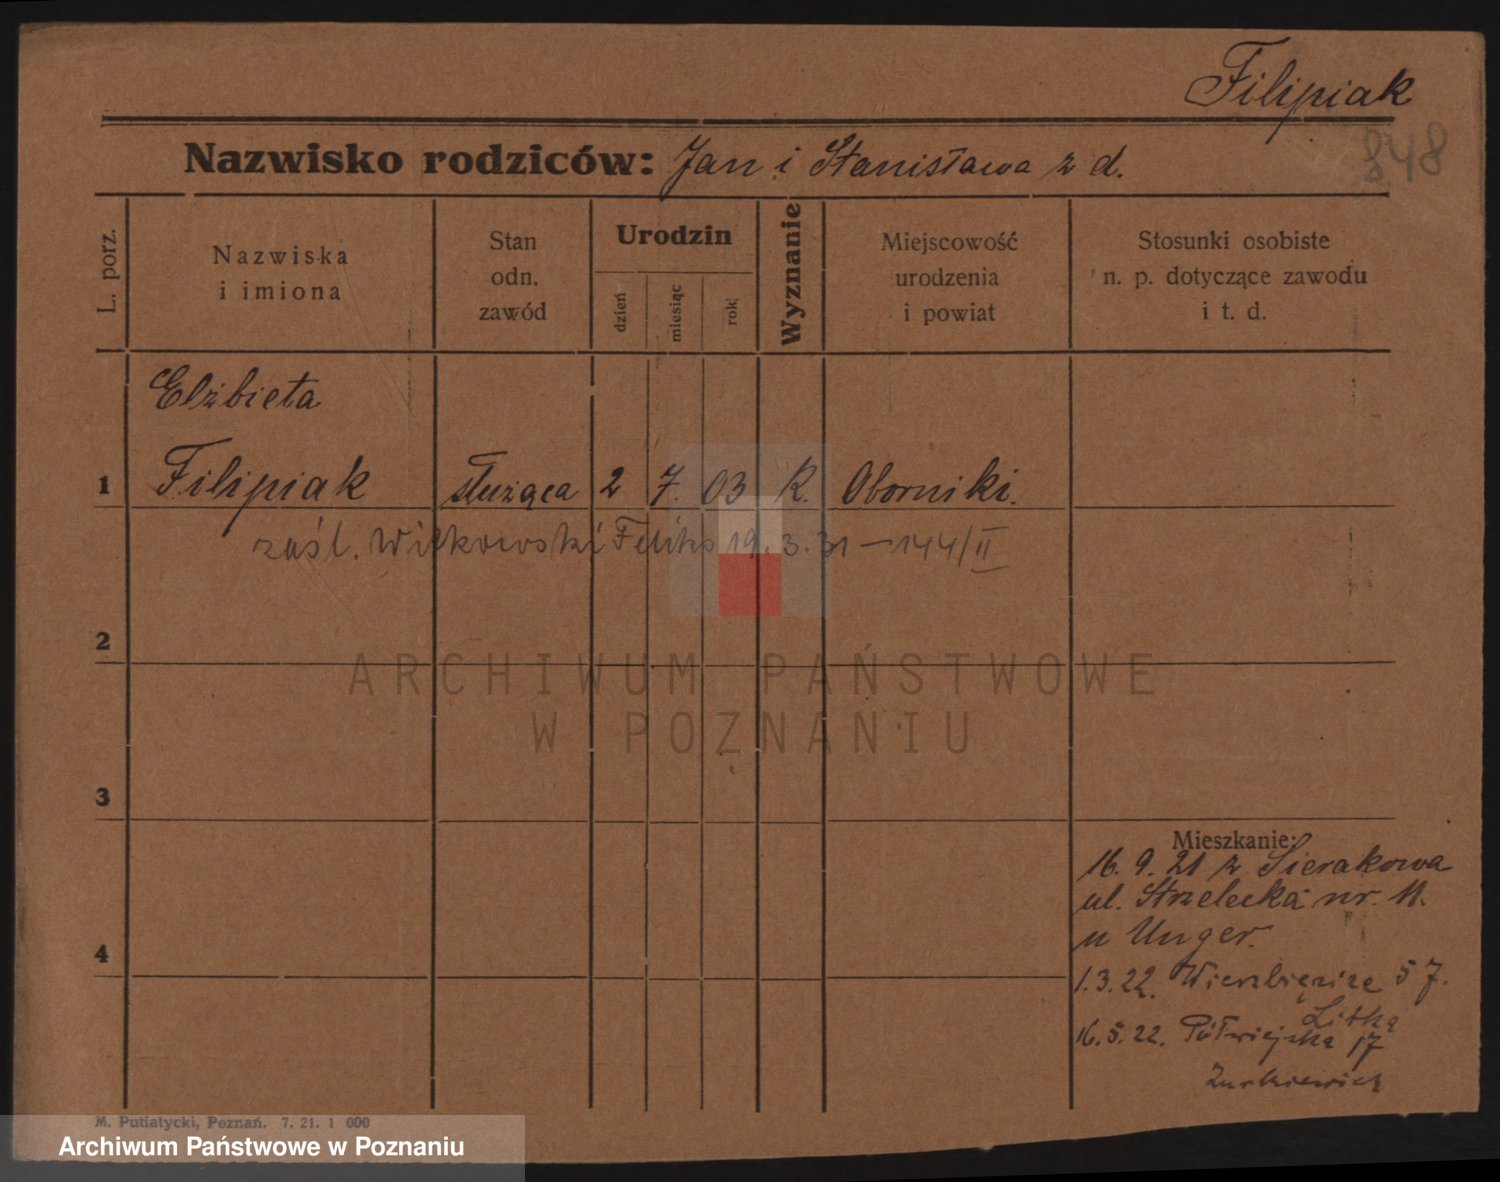 Filipiak
848
Nazwisko rodziców: Jan i Stanisława z d.
L. porz.
Nazwiska
i imiona
Stan
odn.
zawód
Urodzin
dzień
miesiąc
rok
Wyznanie
Miejscowość
urodzenia
i powiat
Stosunki osobiste
n. p. dotyczące zawodu
i t. d.
Elżbieta
1 Filipiak służąca 2 7. 03 K. Oborniki.
zaśl. Witkowski Feliks 19.3.31 – 144/II
2
ARCHIWUM PAŃSTWOWE
W POZNANIU
3
Mieszkanie:
16. 9. 21 z Sierakowa
ul. Strzelecka nr. 11.
u Unger.
4
1.3.22. Wierzbięcice 57.
Litka
16.5.22. Półwiejska 17
M. Putiatycki, Poznań. 7. 21. 1 000
Archiwum Państwowe w Poznaniu